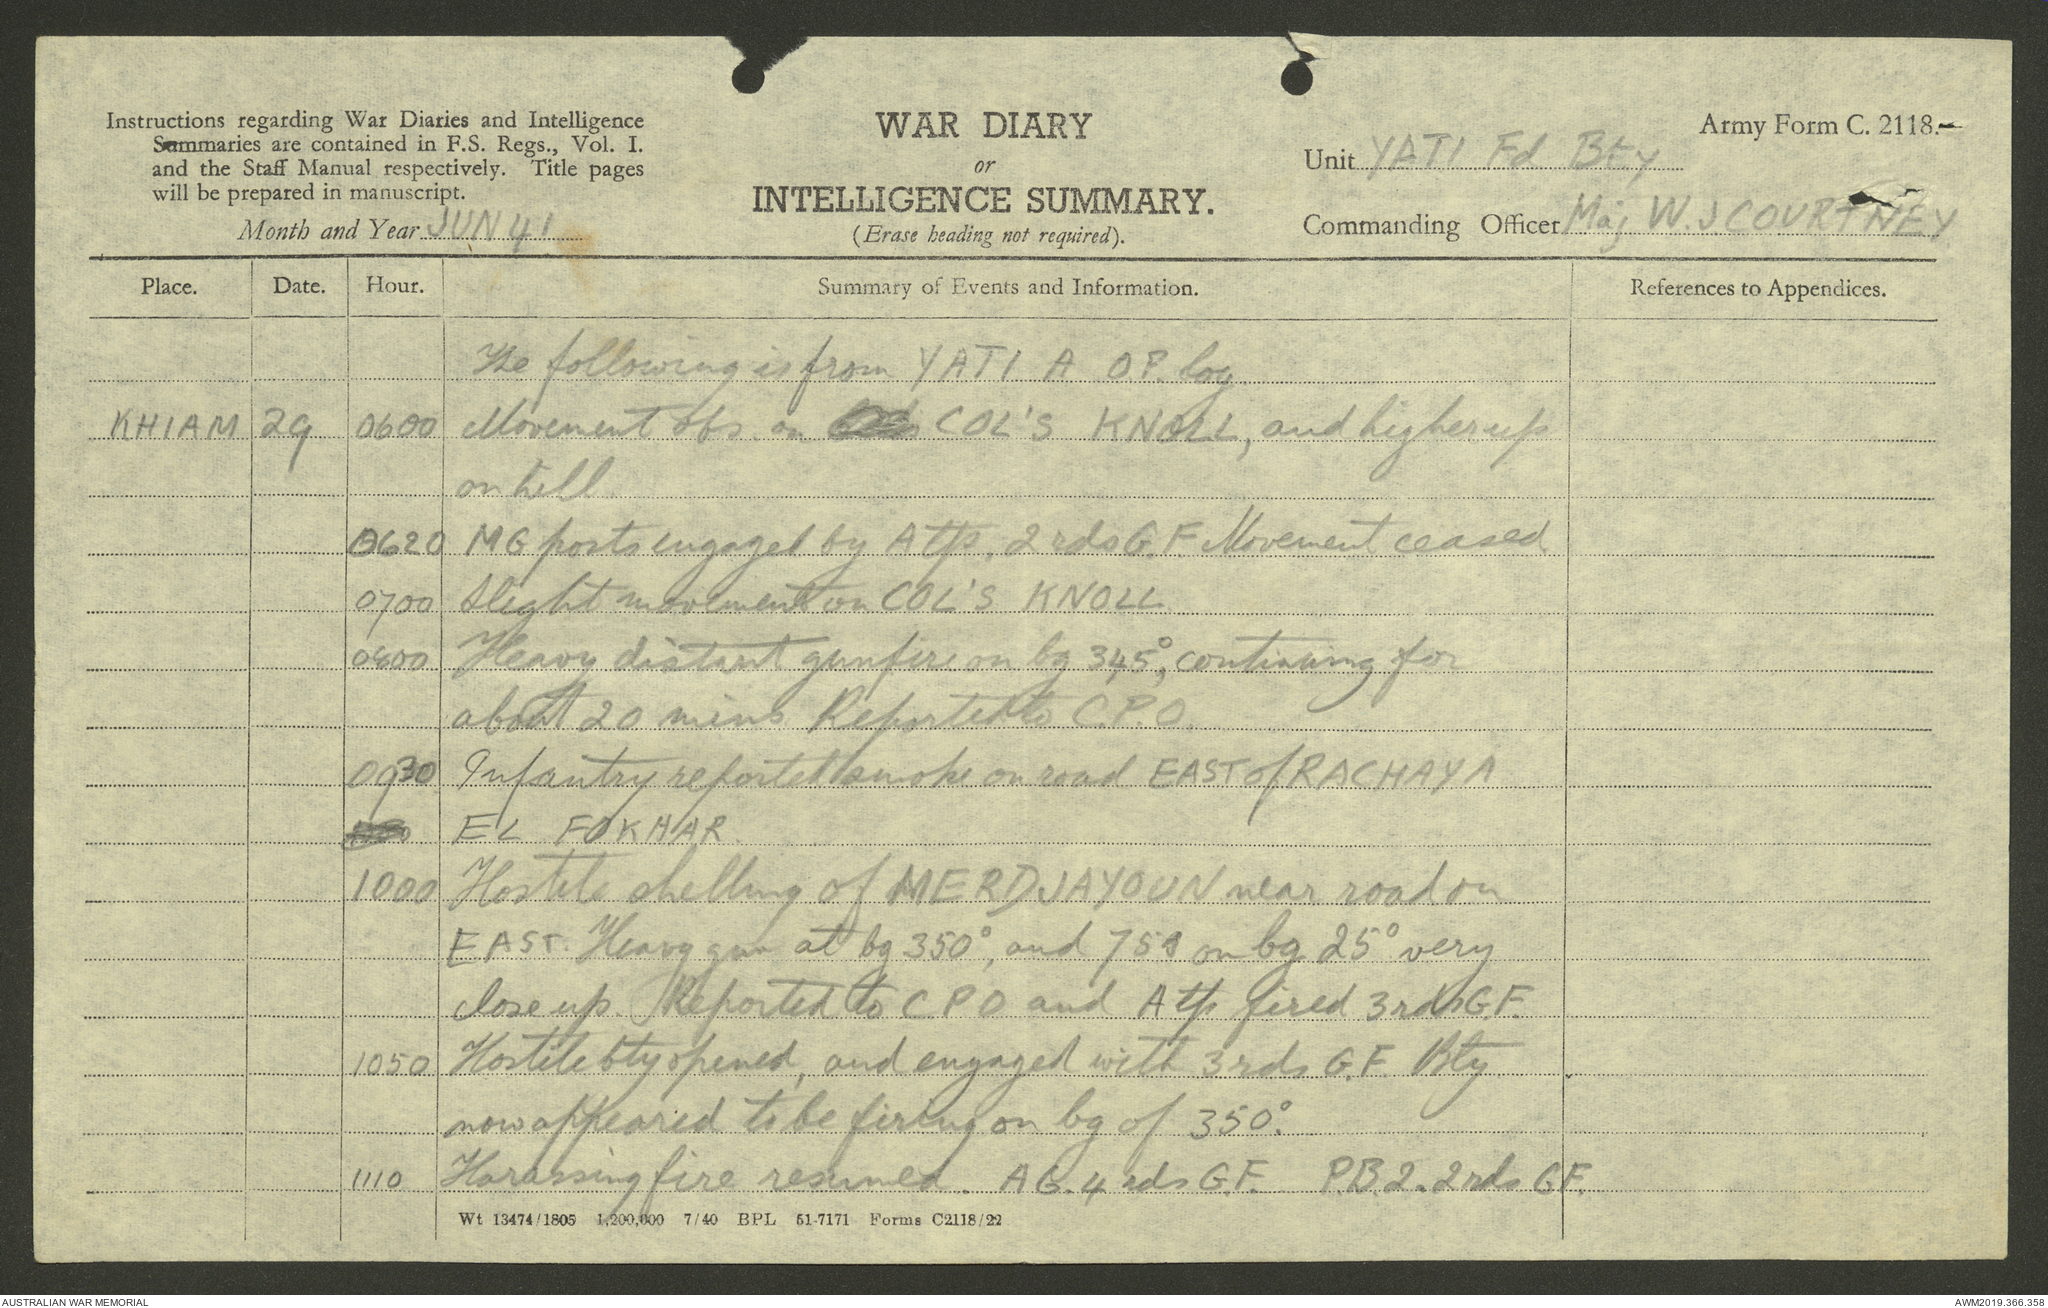 Instructions regarding War Diaries and Intelligence
Summaries are contained in F.S. Regs., Vol. I.
and the Staff Manual respectively. Title pages
will be prepared in manuscript.
Month and Year JUN 41
WAR DIARY
or
INTELLIGENCE SUMMARY.
(Erase heading not required).
Army Form C. 2118.
Unit YATI Fd Bty
Commanding Officer Maj W. J COURTNEY
Place. Date. Hour. Summary of Events and Information. References to Appendices.
The following is from YATI A O.P. log
KHIAM 29 0600 Movement obs. on COL'S KNOLL, and higher up
on hill.
0620 MG posts engaged by A tp, 2 rds G.F. Movement ceased
0700 Slight movement on COL'S KNOLL
0800 Heavy distant gunfire on bg 345°, continuing for
about 20 mins. Reported to C.P.O.
0930 Infantry reported smoke on road EAST of RACHAYA
EL FOKHAR.
1000 Hostile shelling of MERDJAYOUN near road on
EAST. Heavy gun at bg 350°, and 75s on bg 25° very
close up. Reported to C P O and A tp fired 3 rds G.F.
1050 Hostile bty opened, and engaged with 3 rds G.F. Bty
now appeared to be firing on bg of 350°.
1110 Harassing fire resumed. A6. 4 rds G.F. P.B.2. 2 rds G.F.
Wt 13474/1805 1,200,000 7/40 BPL 51-7171 Forms C2118/22
AUSTRALIAN WAR MEMORIAL
AWM2019.366.358